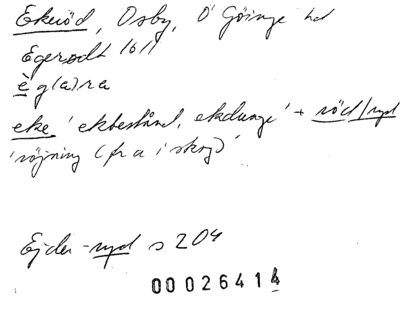 Ekeröd, Osby, Ö Göinge hd
Egerodt 1611
è g(a)ra
eke 'ekbestånd, ekdunge' + röd/ryd
'röjning (fr a i skog)'
Ejder-ryd s 204
00026414